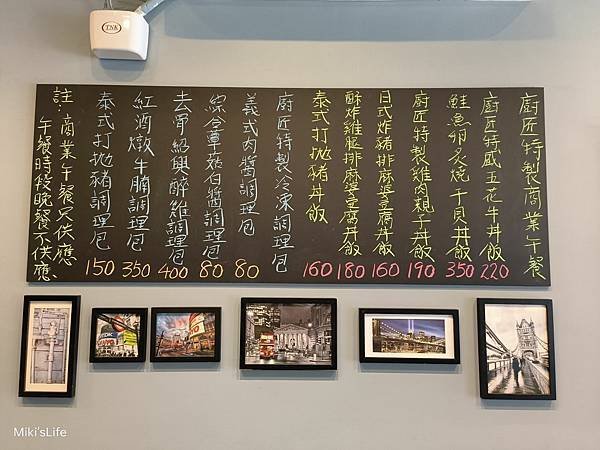 廚匠特製商業午餐
廚匠特盛五花牛丼飯 220
鮭魚卵炙燒干貝丼飯 350
廚匠特製雞肉親子丼飯 190
日式炸豬排麻婆豆腐丼飯 160
酥炸雞腿排麻婆豆腐丼飯 180
泰式打拋豬丼飯 160
廚匠特製冷凍調理包
義式肉醬調理包 80
綜合蕈菇白醬調理包 80
去骨紹興醉雞調理包 400
紅酒燉牛腩調理包 350
泰式打拋豬調理包 150
註:商業午餐只供應
午餐時段晚餐不供應
TNK
Miki'sLife